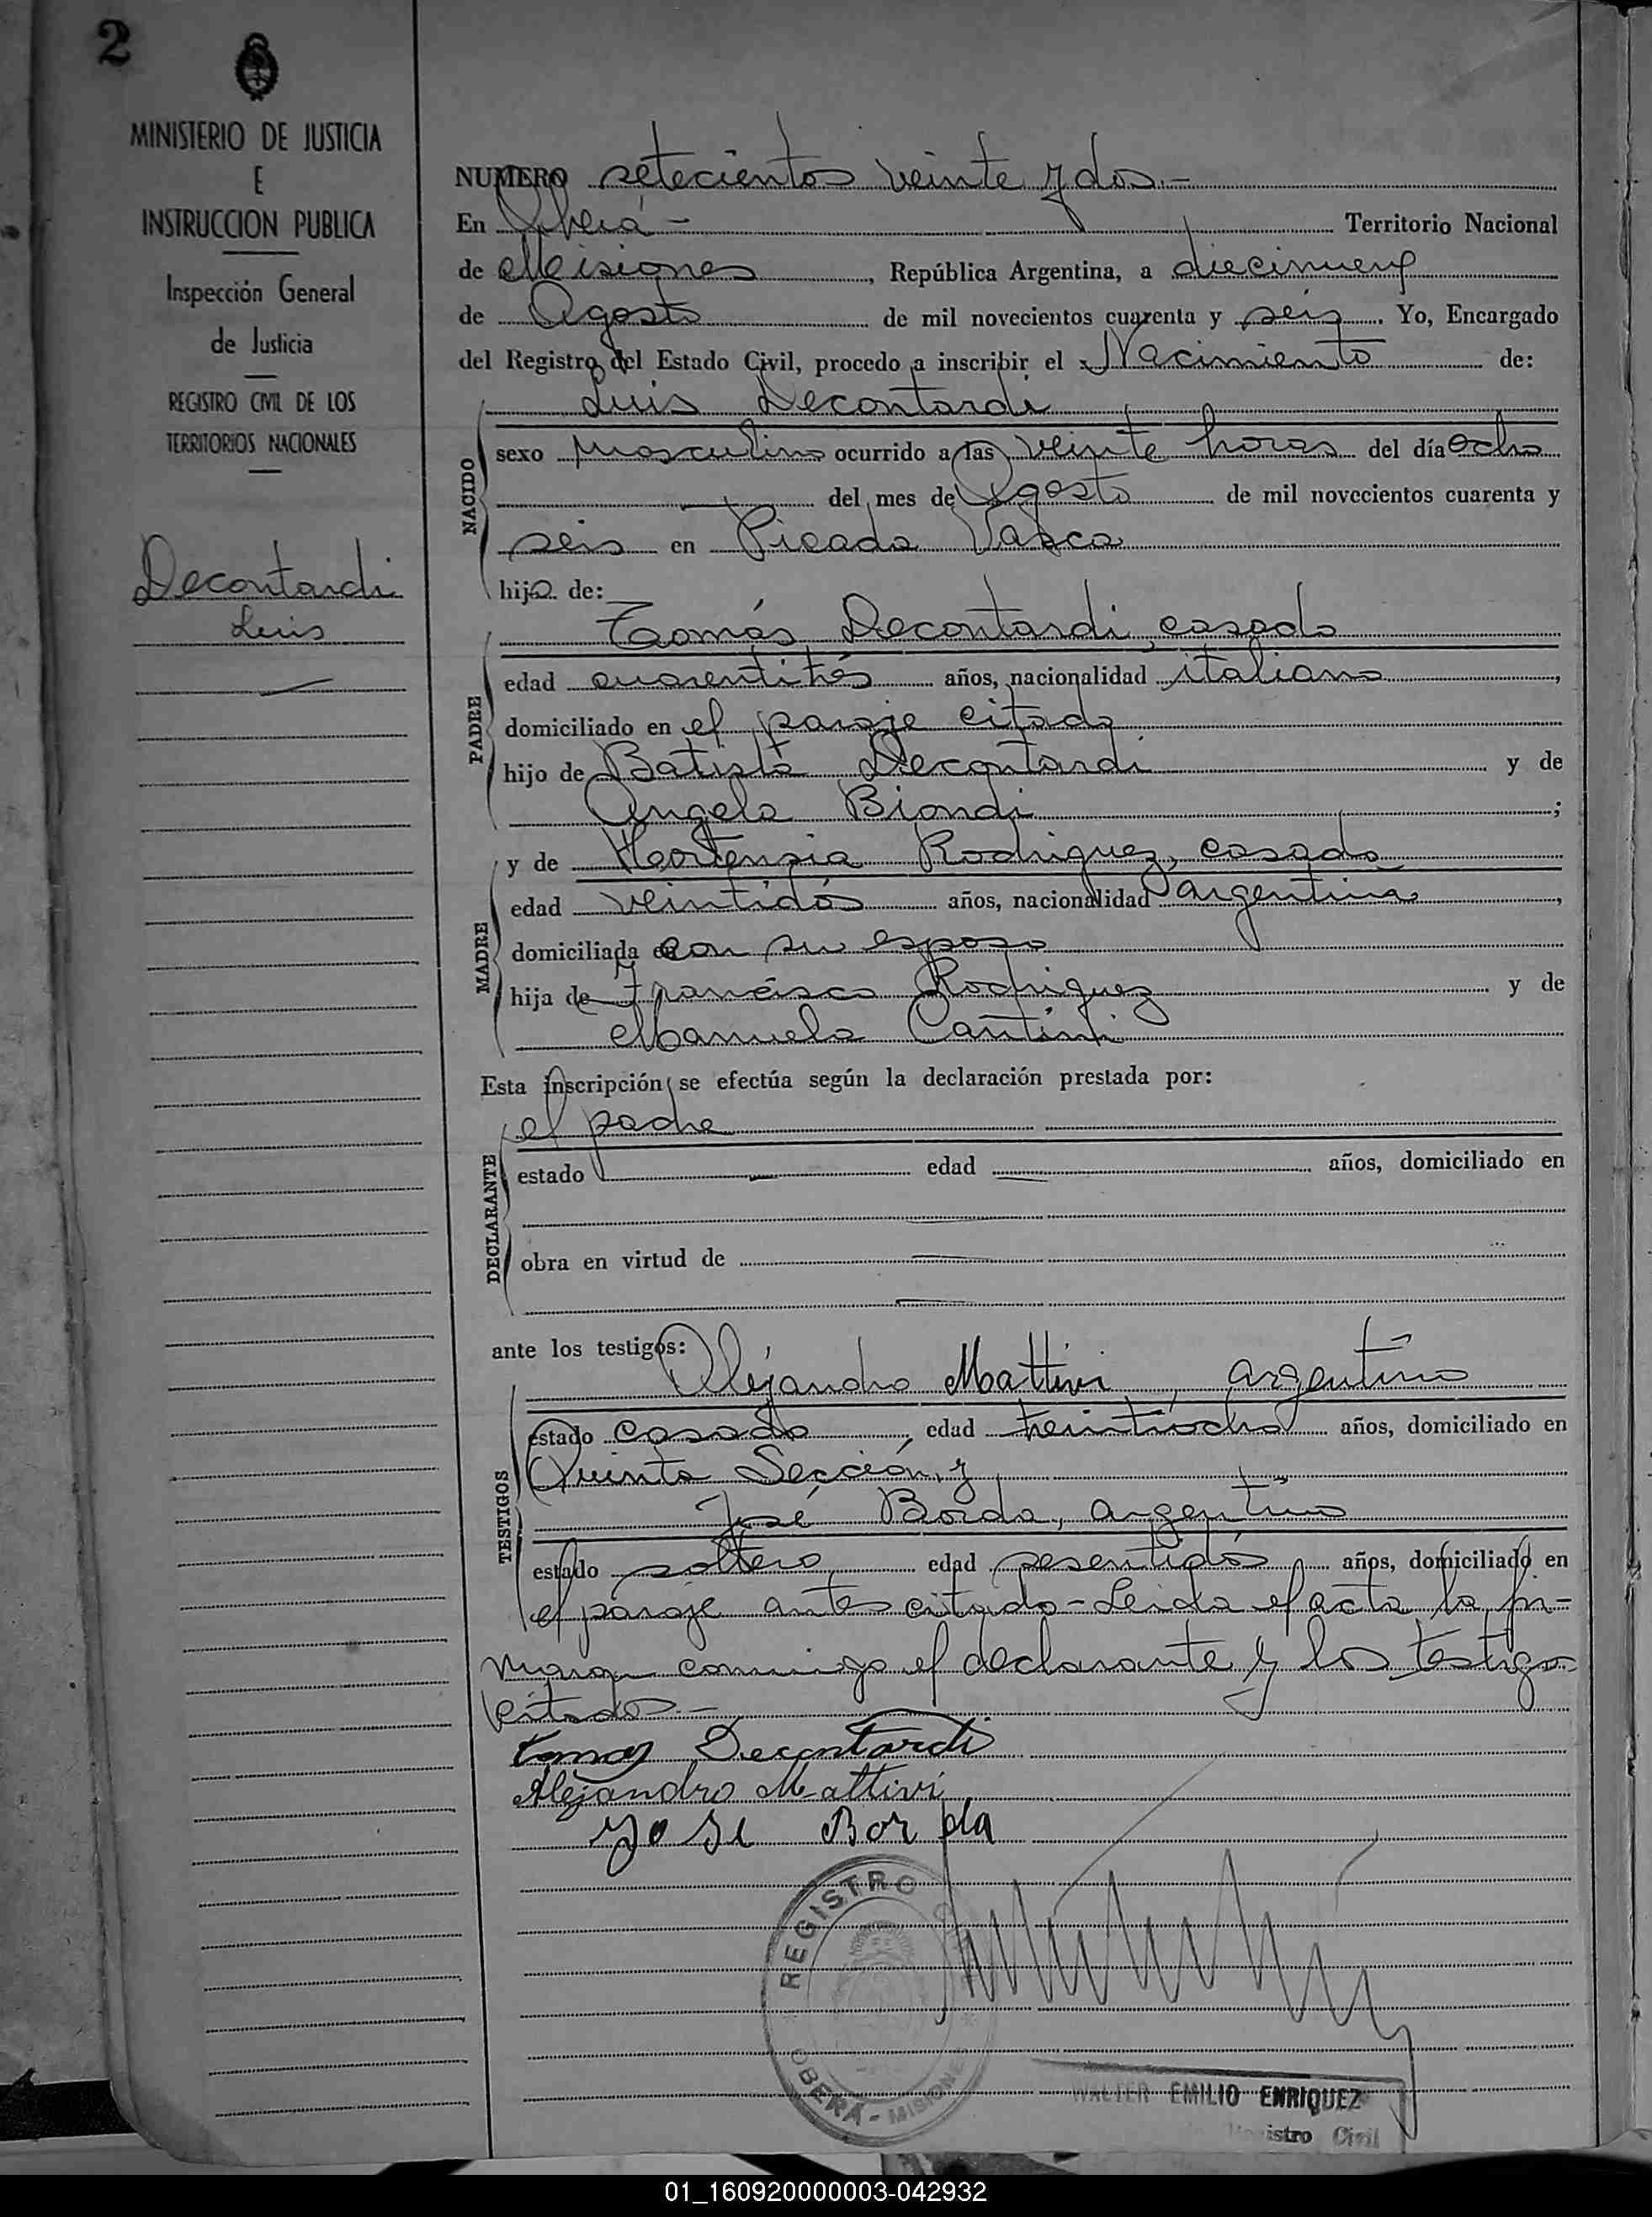 2
MINISTERIO DE JUSTICIA
E
INSTRUCCION PUBLICA
Inspección General
de Justicia
REGISTRO CIVIL DE LOS
TERRITORIOS NACIONALES
Decontardi
Luis
NUMERO setecientos veinte y dos.-
En Oberá- Territorio Nacional
de Misiones, República Argentina, a diecinueve
de Agosto de mil novecientos cuarenta y seis. Yo, Encargado
del Registro del Estado Civil, procedo a inscribir el Nacimiento de:
Luis Decontardi
NACIDO
sexo masculino ocurrido a las veinte horas del día ocho
del mes de Agosto de mil novecientos cuarenta y
seis en Picada Vasca
hijo de:
PADRE
Tomás Decontardi, casado
edad cuarentitrés años, nacionalidad italiano,
domiciliado en el paraje citado
hijo de Batista Decontardi y de
Angela Biondi;
MADRE
y de Hortensia Rodriguez, casada
edad veintidós años, nacionalidad argentina,
domiciliada con su esposo
hija de Francisco Rodriguez y de
Manuela
Esta inscripción se efectúa según la declaración prestada por:
DECLARANTE
el padre
estado edad años, domiciliado en
obra en virtud de
ante los testigos:
TESTIGOS
Alejandro Mattivi, argentino
estado casado, edad treintiocho años, domiciliado en
Quinta Sección, y
José Borda, argentino
estado soltero edad sesentidós años, domiciliado en
el paraje antes citado-Leida el acta, la fir-
maron conmigo el declarante y los testigos
citados.-
tomas Decontardi
Alejandro Mattivi
Jose Borda
REGISTRO
OBERÁ - MISIONES
WALTER EMILIO ENRIQUEZ
Registro Civil
01_160920000003-042932